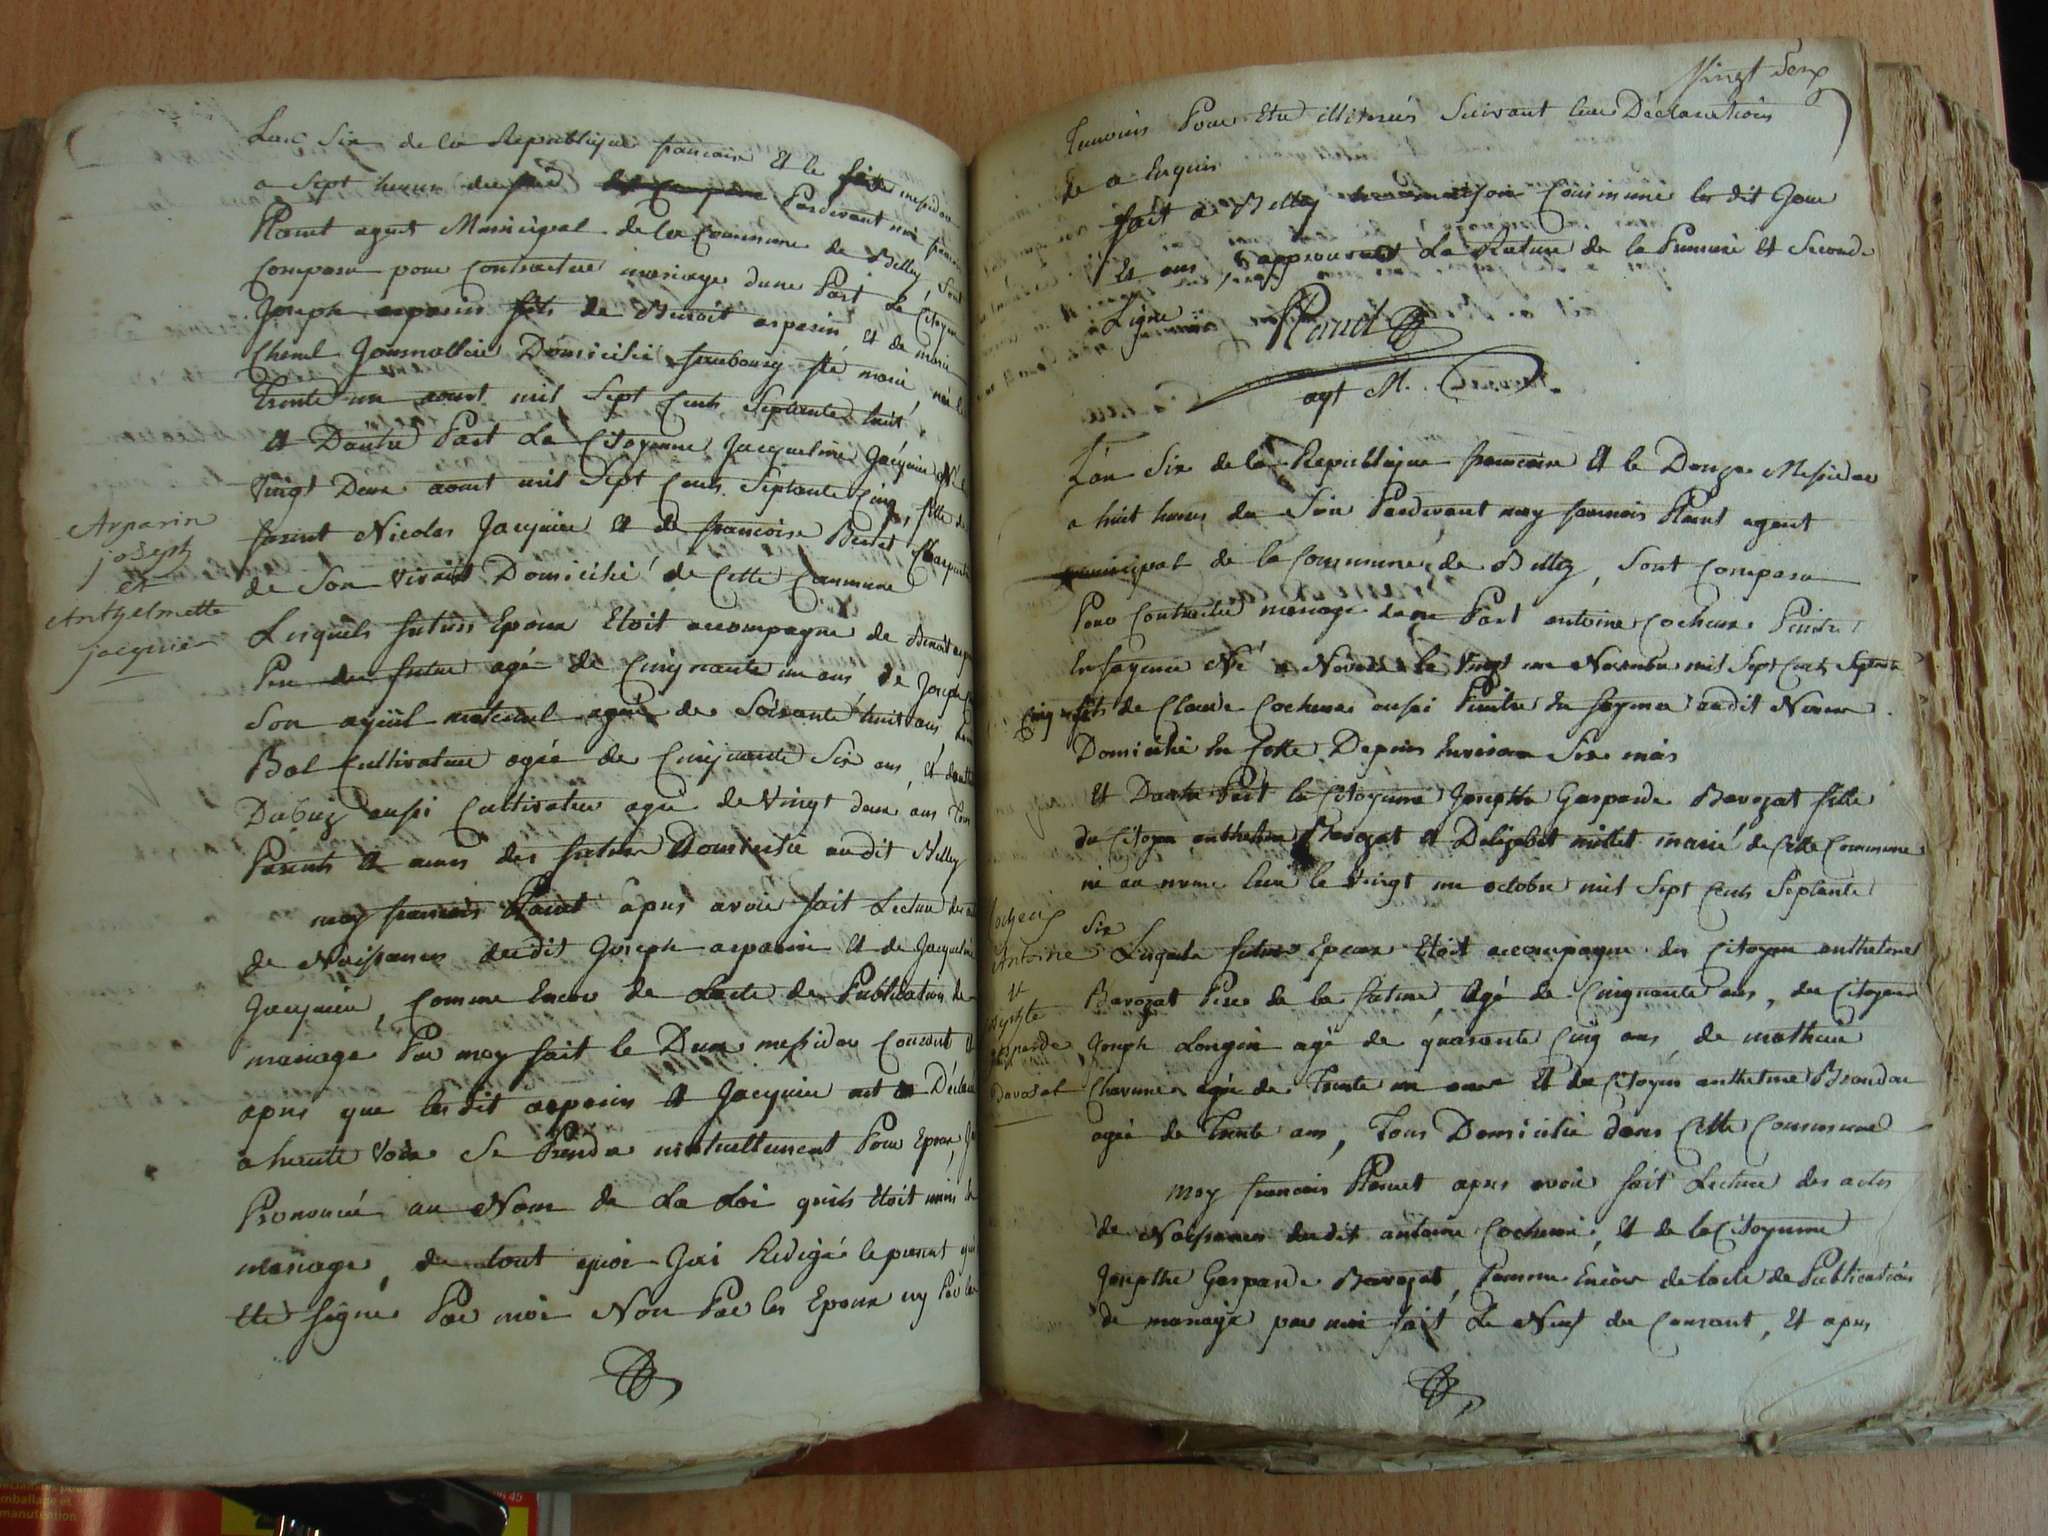 Lan Six de la Republique francaise Et le seize messidor
a sept heures du soir Pardevant moi francois
Planet agent Municipal de la Commune de Billey, Sont
Comparu pour Contracter mariage dune Part Le Citoyen
Joseph arparin fils de Benoit arparin, et de marie
Journallier Domicilié faubourg ste marie, né le
trente un aout mil Sept Cents Septante huit
Et Dautre Part La Citoyenne Jacqueline Jacquier Née le
vingt Deux aout mil Sept Cents Septante Cinq, fille de
Nicolas Jacquier Et de francoise
de Son vivant Domicilié de Cette Commune
Lesquels futurs Epoux Etoit accompagné de Benoit
Pere du futur agé de Cinquante un ans de Joseph
Son ayuil maternel agée de Soixante huit ans
Bal Cultivateur agée de Cinquante Six ans, et dantelme
Dubuis aussi Cultivateur agée de vingt deux ans Tous
Parents Et amis des futurs Domicilié audit Billey
moy francois Planet apres avoir fait Lecture des actes
de Naissances dudit Joseph arparin Et de Jacqueline
Jacquier, Comme Encor de Lacte de Publication de
mariage Par moy fait le Deux messidor Courant Et
apres que lesdit arparin Et Jacquier ont Déclaré
a haute voix Se Prendre mutuellement Pour Epoux, Jai
Prononcé au Nom de La Loi quils Etoit unis en
mariage, de tout quoi Jai Redigée le present qui
Eté Signé Par moi Non Par les Epoux ny Par les
Arparin
joseph
et
Anthelmette
jacquier
vingt deux
Temoins Pour Etre illiterés Suivant leur Déclaration
de a Enquis
fait a Billey Commune les dit Jour
Et an, approuvant La Rature de la Premiere Et Seconde
Ligne
Planet
agt M.
L'an Six de la Republique francaise Et le Douze Messidor
a huit heures du Soir Pardevant moy francois Planet agent
municipal de la Commune de Billey, Sont Comparu
Pour Contracter mariage dune Part antoine Cocheux Peintre
En fayence Né a Novers le vingt un Novembre mil Sept Cents Septante
Cinq fils de Claude Cocheux aussi Peintre En fayence audit Novers
Domicilié En Cette Depuis Environ Six mois
Et Dautre Part la Citoyenne Josephte Gasparde Bavozat fille
du Citoyen anthelme Bavozat et Delizabet millet marié de Cette Commune
né au meme lieu le vingt un octobre mil Sept Cents Septante
Six
Lesquels futurs Epoux Etoit accompagne du Citoyen anthelme
Bavozat Pere de la future, agé de Cinquante ans, du Citoyen
Joseph Longin agé de quarante Cinq ans, de mathieu
agée de Trente un ans Et du Citoyen anthelme
agée de Trente ans, Tous Domicilié dans Cette Commune
Moy francois Planet apres avoir fait Lecture des actes
de Naissances dudit antoine Cocheux, Et de la Citoyenne
Josepthe Gasparde Bavozat, Comme Encor de lacte de Publication
de mariage par moi fait Le Neuf du Courant, Et apres
Cocheux
Antoine
et
Josephte
gasparde
Bavozat